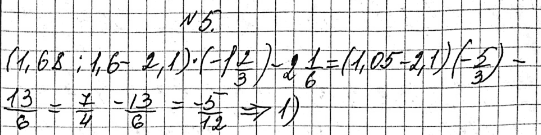 №5.
(1,68 : 1,6 - 2,1) · (-1 2/3) - 2 1/6 = (1,05 - 2,1)(-5/3) -
13/6 = 7/4 - 13/6 = -5/12 ⇒ 1)